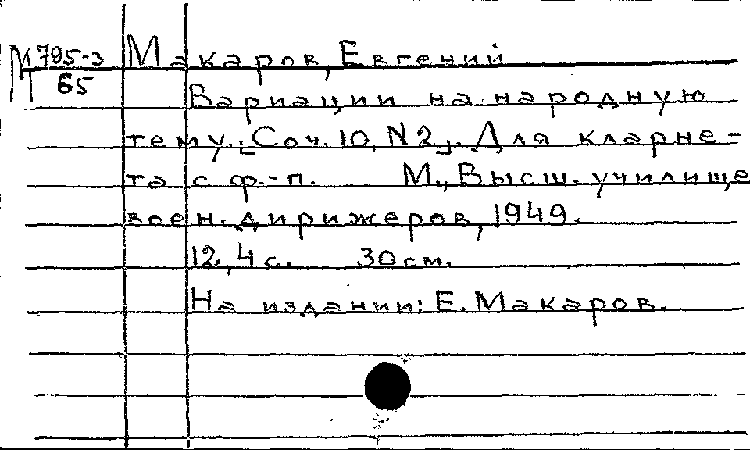 М 795-3
65
Макаров, Евгений
Вариации на народную
тему. [Соч. 10, N2]. Для кларне-
та с ф.-п. М., Высш. училище
воен. дирижеров, 1949.
12, 4 с. 30 см.
На издании: Е. Макаров.